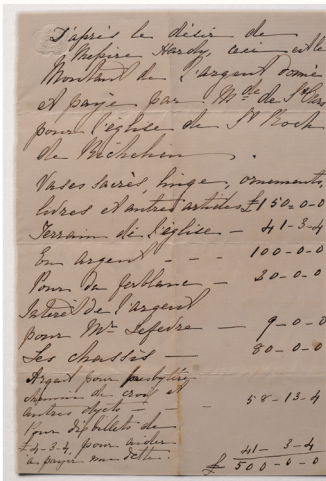 D'après le désir de
Messire Hardy, ceci est le
Montant de l'argent donné
et payé par Mde de St Ours
pour l'église de St Roch
de Richelieu.
Vases sacrés, linge, ornements,
livres et autres articles £150-0-0
Terrain de l'église - 41-3-4
En argent - - - 100-0-0
Pour du ferblanc - 30-0-0
Intérêt de l'argent
pour Mr Lefevre - 9-0-0
Les chassis - 80-0-0
Argent pour presbytère
chemin de croix et
autres objets - - 58-13-4
Pour dix billets de
£4-3-4, pour aider
à payer une dette. 41-3-4
£500-0-0